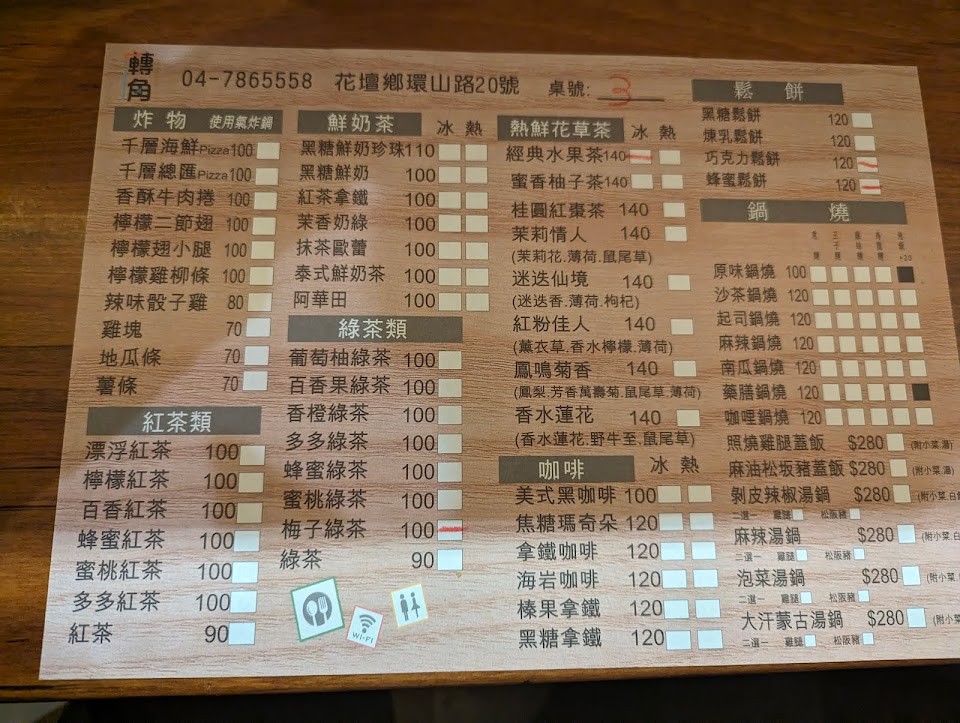 轉角
04-7865558 花壇鄉環山路20號 桌號: 3
炸物 使用氣炸鍋
千層海鮮Pizza100
千層總匯Pizza100
香酥牛肉捲 100
檸檬二節翅 100
檸檬翅小腿 100
檸檬雞柳條 100
辣味骰子雞 80
雞塊 70
地瓜條 70
薯條 70
紅茶類
漂浮紅茶 100
檸檬紅茶 100
百香紅茶 100
蜂蜜紅茶 100
蜜桃紅茶 100
多多紅茶 100
紅茶 90
鮮奶茶 冰 熱
黑糖鮮奶珍珠110
黑糖鮮奶 100
紅茶拿鐵 100
茉香奶綠 100
抹茶歐蕾 100
泰式鮮奶茶 100
阿華田 100
綠茶類
葡萄柚綠茶 100
百香果綠茶 100
香橙綠茶 100
多多綠茶 100
蜂蜜綠茶 100
蜜桃綠茶 100
梅子綠茶 100
綠茶 90
Wi-Fi
熱鮮花草茶 冰 熱
經典水果茶140
蜜香柚子茶140
桂圓紅棗茶 140
茉莉情人 140
(茉莉花.薄荷.鼠尾草)
迷迭仙境 140
(迷迭香.薄荷.枸杞)
紅粉佳人 140
(薰衣草.香水檸檬.薄荷)
鳳鳴菊香 140
(鳳梨.芳香萬壽菊.鼠尾草.薄荷)
香水蓮花 140
(香水蓮花.野牛至.鼠尾草)
咖啡 冰 熱
美式黑咖啡 100
焦糖瑪奇朵 120
拿鐵咖啡 120
海岩咖啡 120
榛果拿鐵 120
黑糖拿鐵 120
鬆餅
黑糖鬆餅 120
煉乳鬆餅 120
巧克力鬆餅 120
蜂蜜鬆餅 120
鍋燒
原味鍋燒 100
沙茶鍋燒 120
起司鍋燒 120
麻辣鍋燒 120
南瓜鍋燒 120
藥膳鍋燒 120
咖哩鍋燒 120
照燒雞腿蓋飯 $280 (附小菜.湯)
麻油松坂豬蓋飯 $280 (附小菜.湯)
剝皮辣椒湯鍋 $280 (附小菜.白
二選一 雞腿 松阪豬
麻辣湯鍋 $280 (附小菜.白
二選一 雞腿 松阪豬
泡菜湯鍋 $280 (附小菜.
二選一 雞腿 松阪豬
大汗蒙古湯鍋 $280 (附小
二選一 雞腿 松阪豬